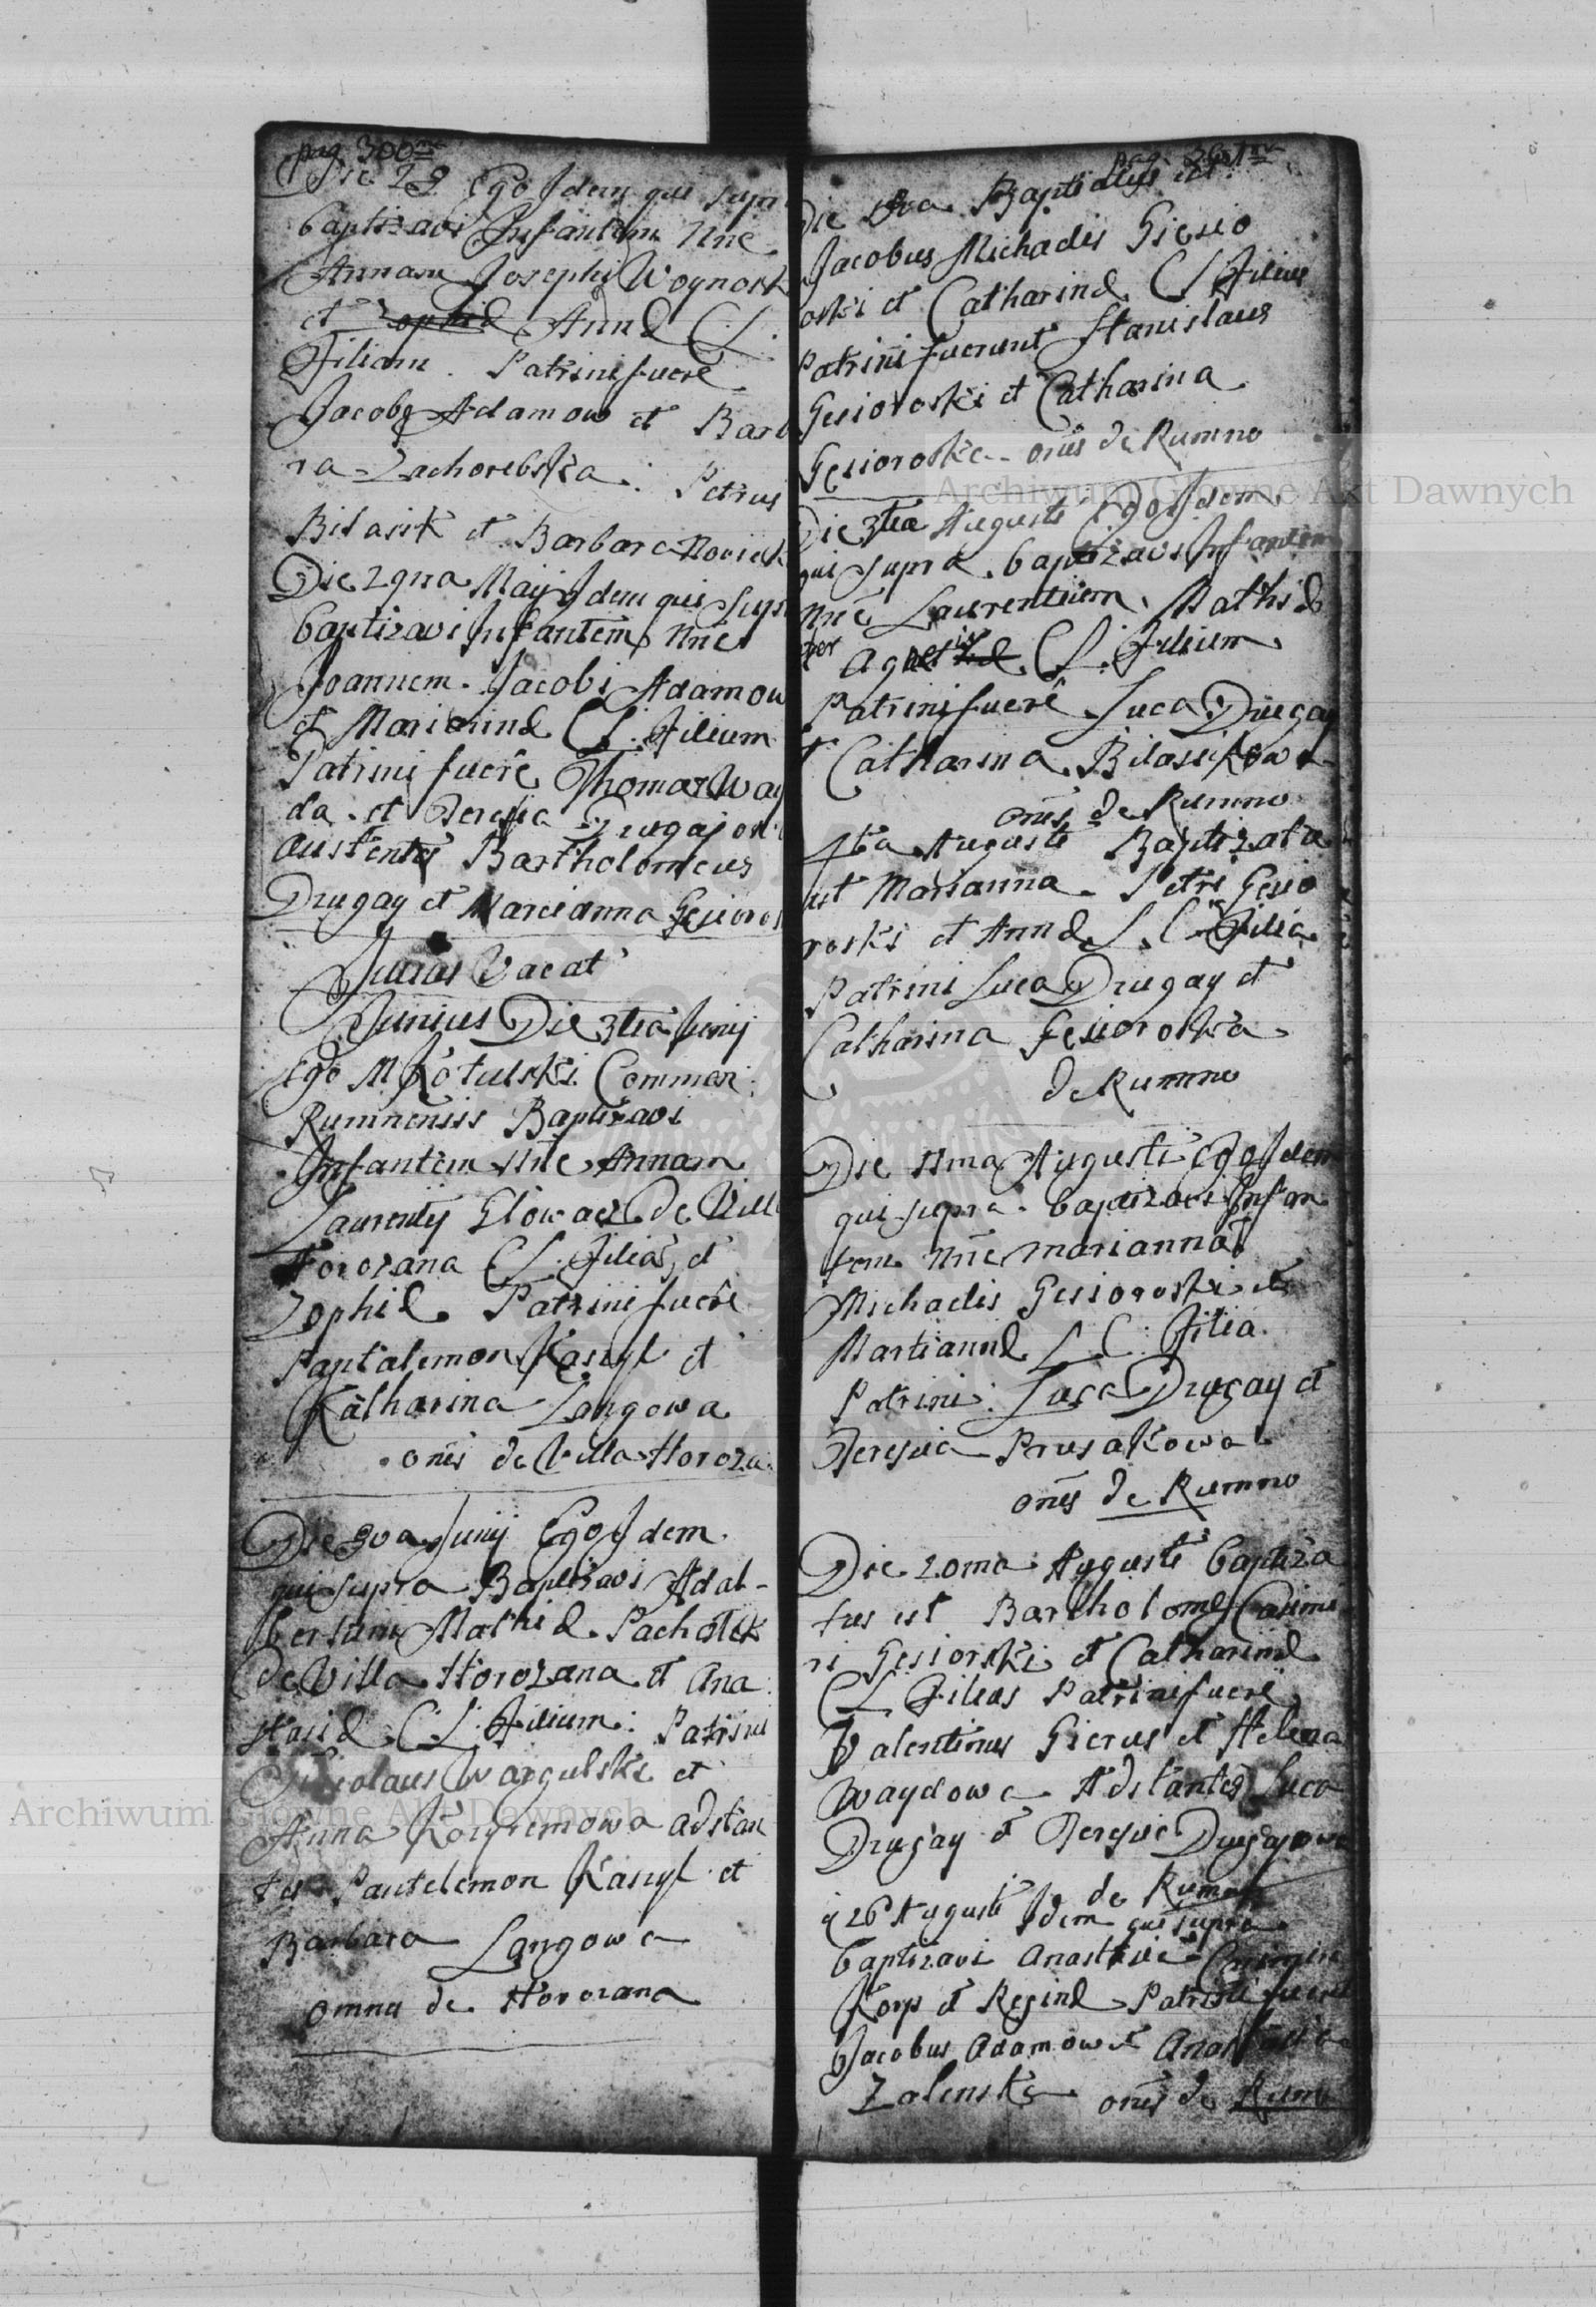 pag 300
Die 29 Ego Idem qui supr
baptizavi Infantem Nne
Annam Josephi Wognorsk
et Zophiæ Annæ C L.
Filiam. Patrini fuere
Jacobg Adamow et Barb
ra Zachorebska: Petrus
Bilasik et Barbara Nowick
Die 2gna Maij Idem qui Supr
baptizavi Infantem Nne
Joannem. Jacobi Adamow
et Mariannæ C L. Filium
Patrini fuere Thomas Way
da et Teresia Drugajow
austentes Bartholomeus
Drugay et Marcianna Gesioros
Julius Vacat
Junius Die 3tia Junij
Ego M Kotulski Commen:
Rumnensis Baptizavi
Infantem Nne Annam
Laurentij Glowacz De Vill
Horozana C L. Filiã, et
Zophiæ. Patrini fuere
Pantalemon Kasyl et
Katharina Langowa
ones de Villa Horoza
Die 30a Junij Ego Idem
qui supra Baptizavi Adal-
bertum Mathiæ Pacholek
De Villa Horozana et Ana
stasiæ C L. Filium: Patrini
Nicolaus Wargulski et
Anna adstan
tes Pantelemon Kasyl et
Barbara Langowa
omnes de Horozana
pag. 301
Die Baptizatus est
Jacobus Michaelis Giesio
roski et Catharinæ C L Filius
Patrini fuerunt Stanislaus
Gesioroski et Catharina
Gesioroska - ones de Rumno
Die 3tia Augusti Ego Idem
qui supra baptizavi Infantem
Nne Laurentium Mathiæ
et C L. Filium
Patrini fuere Luca Drugay
et Catharina Bilasikowa
ones de Rumno
4ta Augusti Baptizata
est Marianna. Petri Gesio
roski et Annæ L. C Filia
Patrini Luca Drugay et
Catharina Gesioroska
de Rumno
Die 11ma Augusti Ego Idem
qui supra baptizavi Infan
tem Nne mariannã
Michaelis Gesioroski et
Martiannæ L C: Filia.
Patrini: Luca Drugay et
Teresia Prusakowa
ones de Rumno
Die 20ma Augusti baptiza
tus est Bartholomeg Casimi
ri Gesiorski et Catharinæ
C L Filius Patrini fuere
Valentinus Gierus et Helena
Waydowa Adstantes Luca
Drugay et Teresia Drugajowa
de Rumno
26 Augusti Idem qui supra
baptizavi Anastasia Casimiri
Korp et Reginæ Patrini fuere
Jacobus Adamow et Anastasia
Zalenska ones de Rumno
Archiwum Główne Akt Dawnych
Archiwum Główne Akt Dawnych